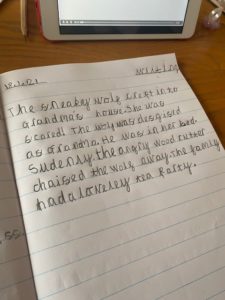 18.1.21
writing
The sneaky wolf crept into
grandma's house. She was
scared! The wolf was desgised
as Grandma. He was in her bed.
Sudenly, the angry wood cutter
chaised the wolf away. The family
had a loveley tea party.